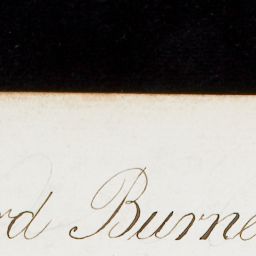 rd Burne